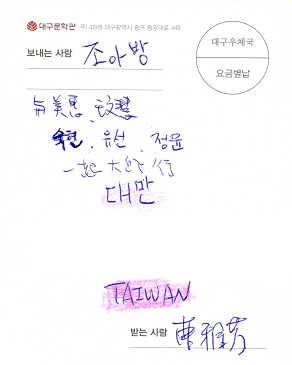 대구문학관 우) 41918 대구광역시 중구 중앙대로 449
보내는 사람 조아방
대구우체국
요금별납
与美惠、玟慧
숙현、유선、정윤
一起 大邱行
대만
TAIWAN
받는 사람 曹雅芳